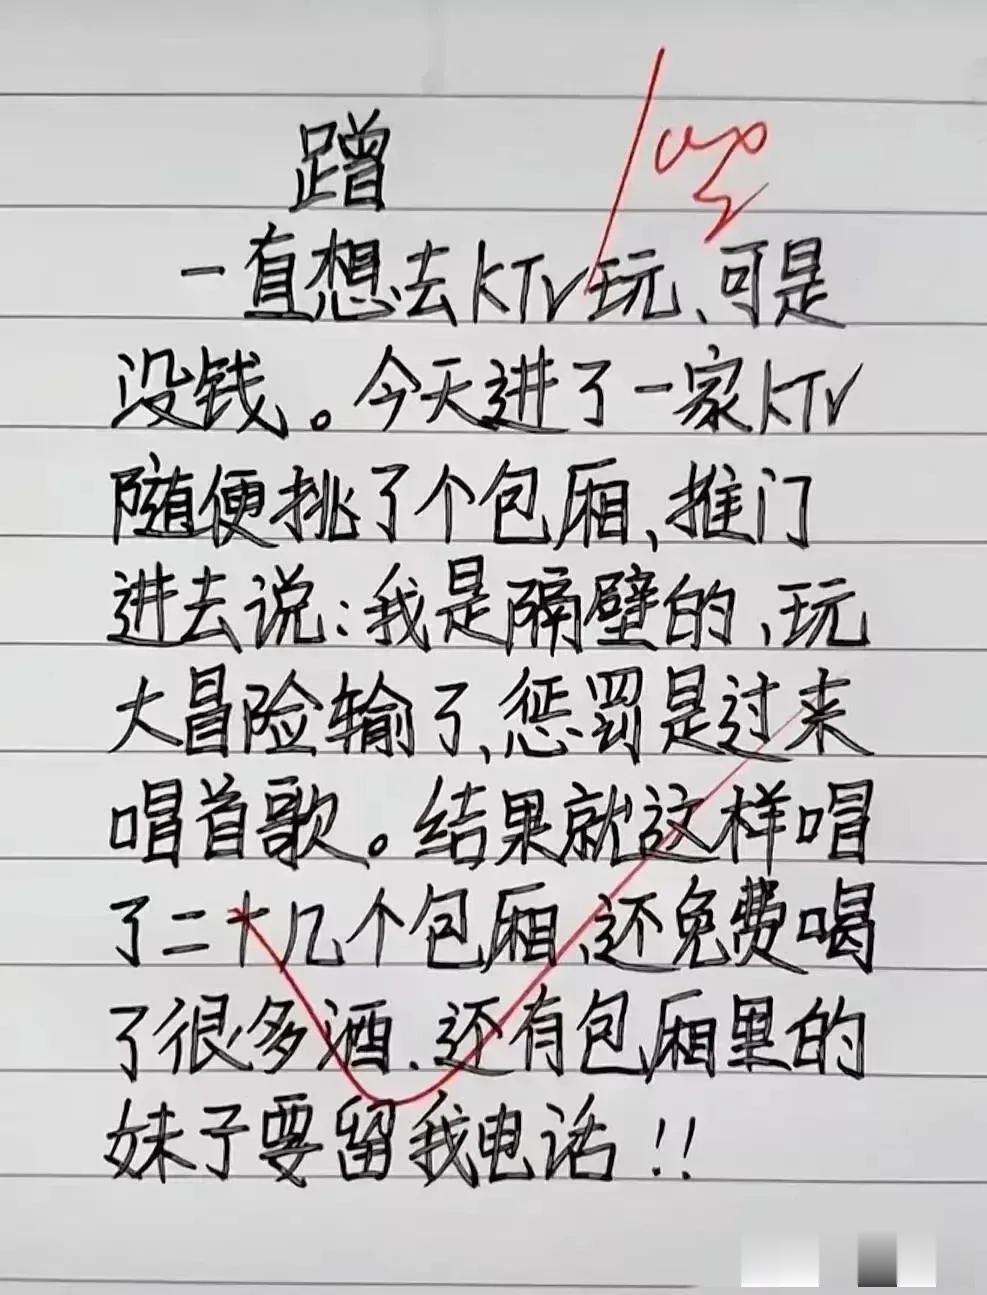 蹭
一直想去KTV玩、可是
没钱。今天进了一家KTV
随便挑了个包厢,推门
进去说:我是隔壁的,玩
大冒险输了,惩罚是过来
唱首歌。结果就这样唱
了二十几个包厢,还免费喝
了很多酒.还有包厢里的
妹子要留我电话!!